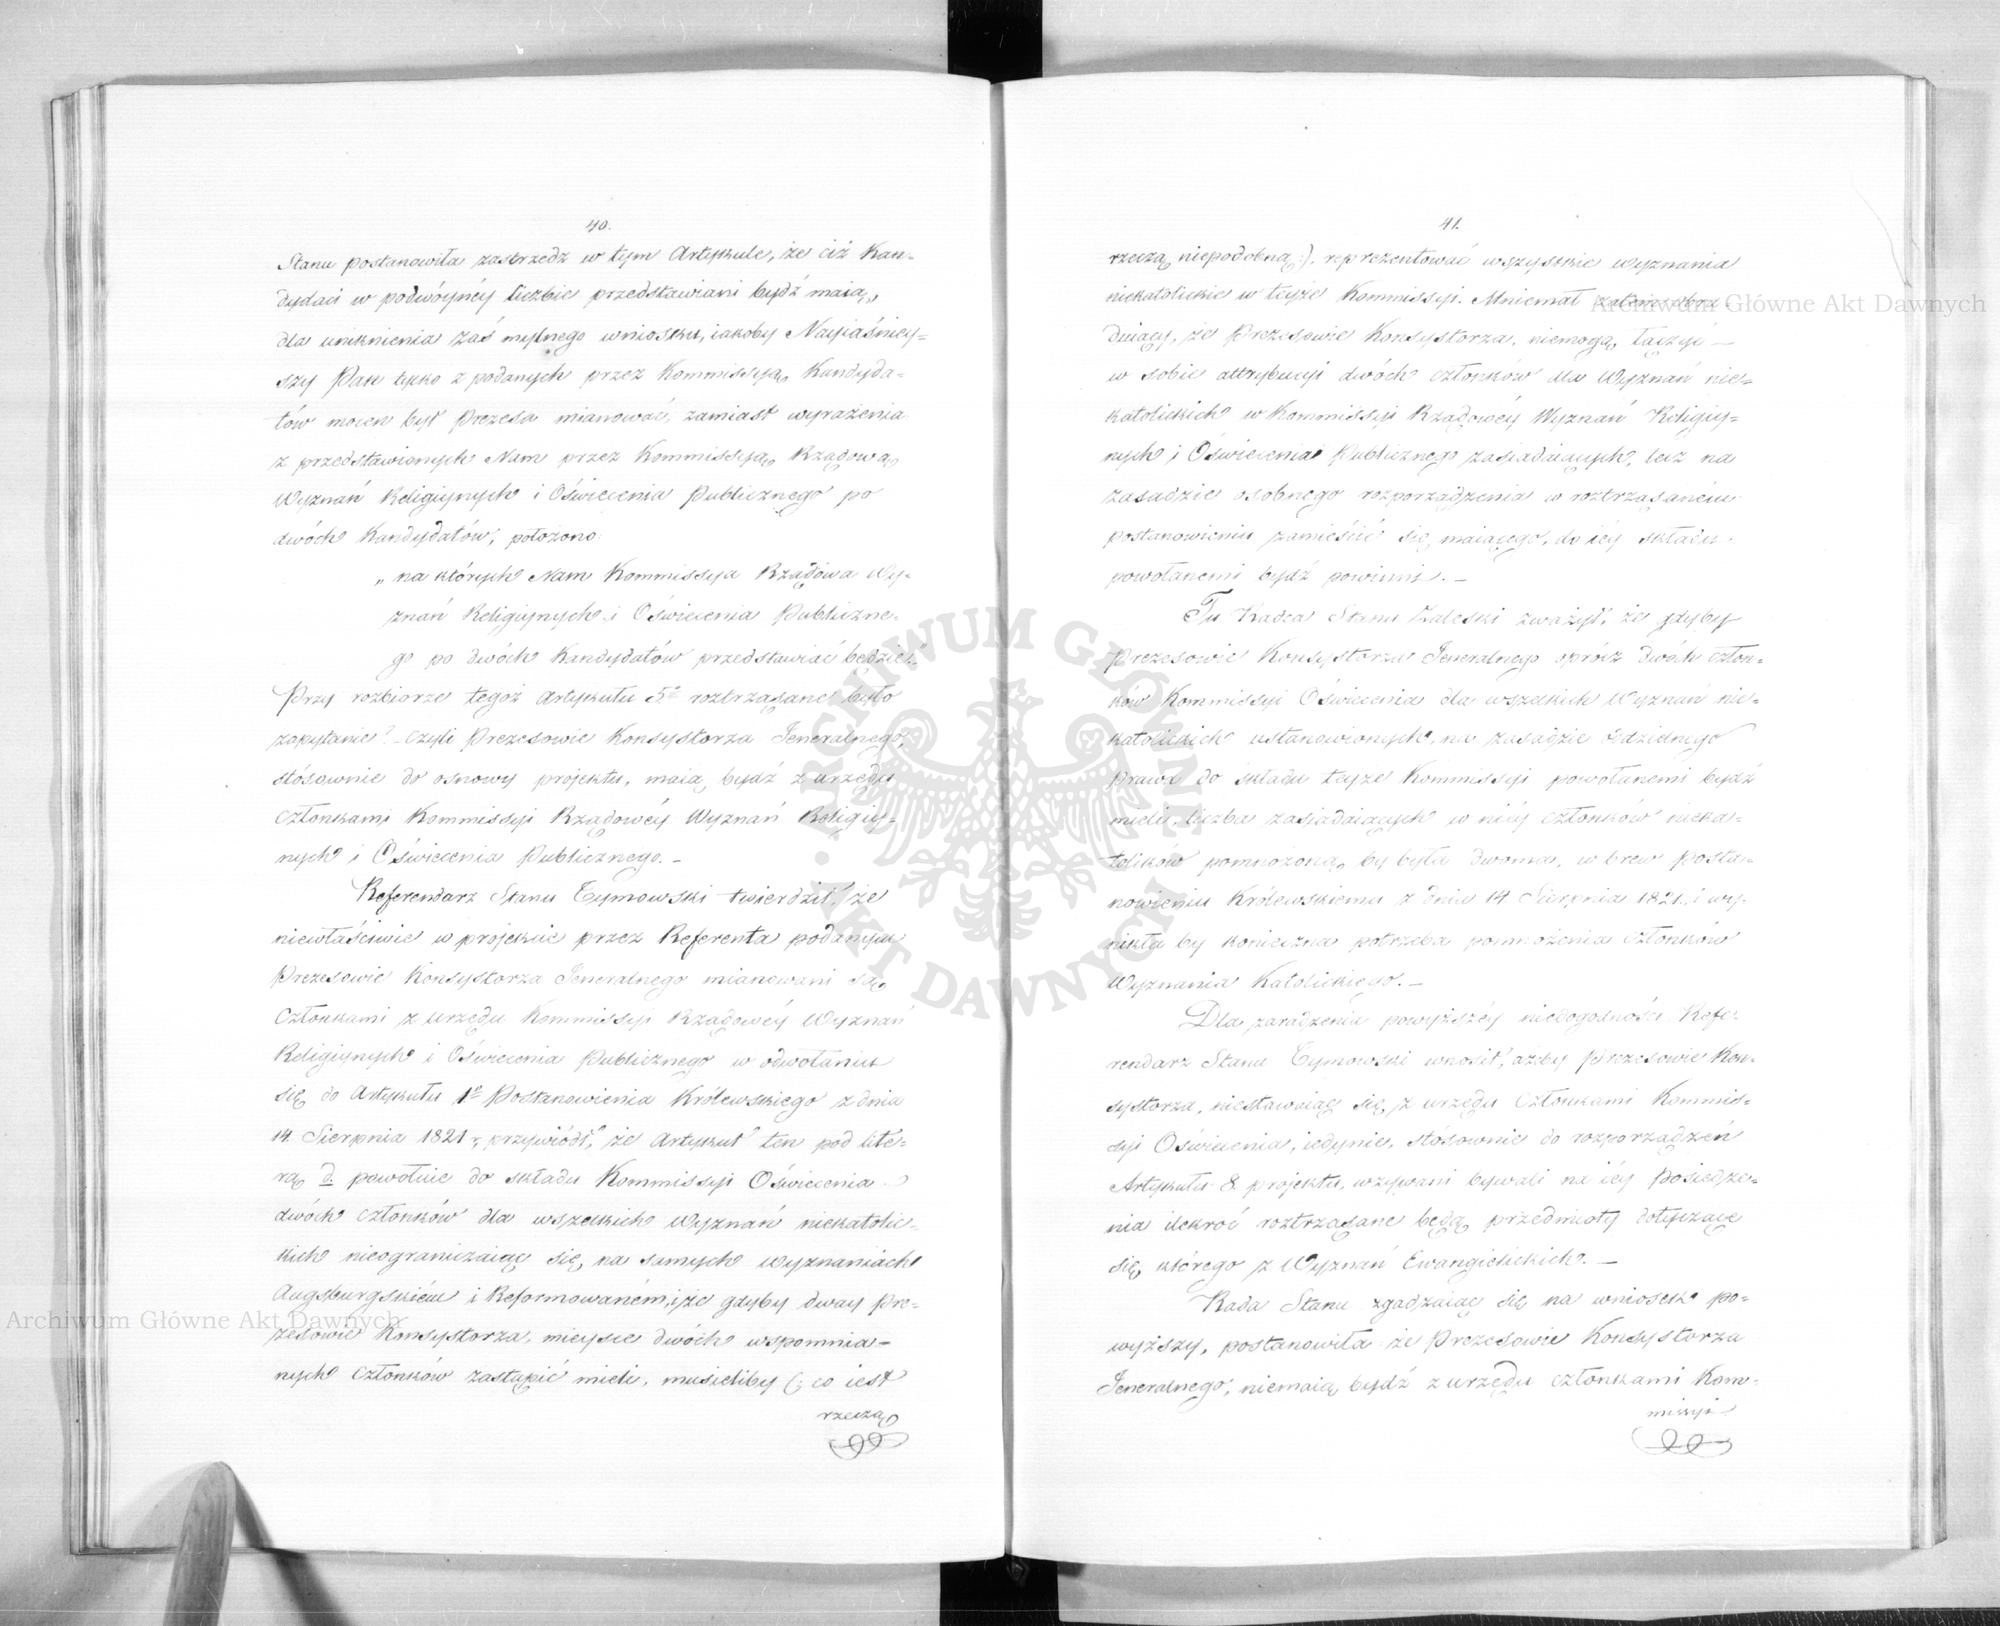 40.
Stanu postanowiła zastrzedz w tym Artykule, że ciż Kan-
dydaci w podwóynéy liczbie przedstawiani bydź maią,
dla uniknienia zaś mylnego wniosku, iakoby Nayiaśniey-
szy Pan tylko z podanych przez Kommissyą Kandyda-
tów mocen był Prezesa mianować, zamiast wyrażenia
z przedstawionych Nam przez Kommissyą Rządową
Wyznań Religiynych i Oświecenia Publicznego po
dwóch Kandydatów, położono:
„na których Nam Kommissya Rządowa Wy-
znań Religiynych i Oświecenia Publiczne-
go po dwóch Kandydatów przedstawiać będzie."
Przy rozbiorze tegoż Artykułu 5o roztrząsane było
zapytanie? czyli Prezesowie Konsystorza Jeneralnego,
stósownie do osnowy projektu, maią bydź z urzędu
członkami Kommissyi Rządowéy Wyznań Religiy-
nych i Oświecenia Publicznego. –
Referendarz Stanu Tymowski twierdził, że
niewłaściwie w projekcie przez Referenta podanym
Prezesowie Konsystorza Jeneralnego mianowani są
Członkami z urzędu Kommissyi Rządowéy Wyznań
Religiynych i Oświecenia Publicznego w odwołaniu
się do Artykułu 1o Postanowienia Królewskiego z dnia
14 Sierpnia 1821 r, przywiódł, że Artykuł ten pod lite-
rą d. powołuie do składu Kommissyi Oświecenia
dwóch członków dla wszelkich Wyznań niekatolic-
kich nieograniczaiąc się na samych wyznaniach
Augsburgskiém i Reformowaném, i że gdyby dway Pre-
zesowie Konsystorza, mieysce dwóch wspomnia-
nych Członków zastąpić mieli, musieliby (: co iest
rzeczą
41.
rzeczą niepodobną :), reprezentować wszystkie wyznania
niekatolickie w teyże Kommissyi. Mniemał zatem obra-
duiący, że Prezesowie Konsystorza, niemogą łączyć –
w sobie attrybucyi dwóch członków dla Wyznań nie-
katolickich w Kommissyi Rządowéy Wyznań Religiy-
nych i Oświecenia Publicznego zasiadaiących, lecz na
zasadzie osobnego rozporządzenia w roztrząsaném
postanowieniu zamieścić się maiącego, do iéy składu
powołanemi bydź powinni. –
Tu Radca Stanu Zaleski zważył, że gdyby
Prezesowie Konsystorza Jeneralnego oprócz dwóch człon-
ków Kommissyi Oświecenia dla wszelkich Wyznań nie-
katolickich ustanowionych, na zasadzie oddzielnego
prawa do składu teyże Kommissyi powołanemi bydź
mieli, liczba zasiadaiących w niéy członków nieka-
tolików pomnożoną by była dwoma, w brew posta-
nowieniu Królewskiemu z dnia 14 Sierpnia 1821, i wy-
nikła by konieczna potrzeba pomnożenia członków
Wyznania Katolickiego. –
Dla zaradzenia powyższéy niedogodności Refe-
rendarz Stanu Tymowski wnosił, ażeby Prezesowie Kon-
systorza, niestawaiąc się z urzędu Członkami Kommis-
syi Oświecenia, iedynie, stósownie do rozporządzeń
Artykułu 8. projektu, wzywani bywali na iéy Posiedze-
nia ilekroć roztrząsane będą przedmioty dotyczące
się którego z Wyznań Ewangielickich. –
Rada Stanu zgadzaiąc się na wniosek po-
wyższy, postanowiła że Prezesowie Konsystorza
Jeneralnego, niemaią bydź z urzędu członkami Kom-
missyi
Archiwum Główne Akt Dawnych
Archiwum Główne Akt Dawnych
ARCHIWUM GŁÓWNE AKT DAWNYCH